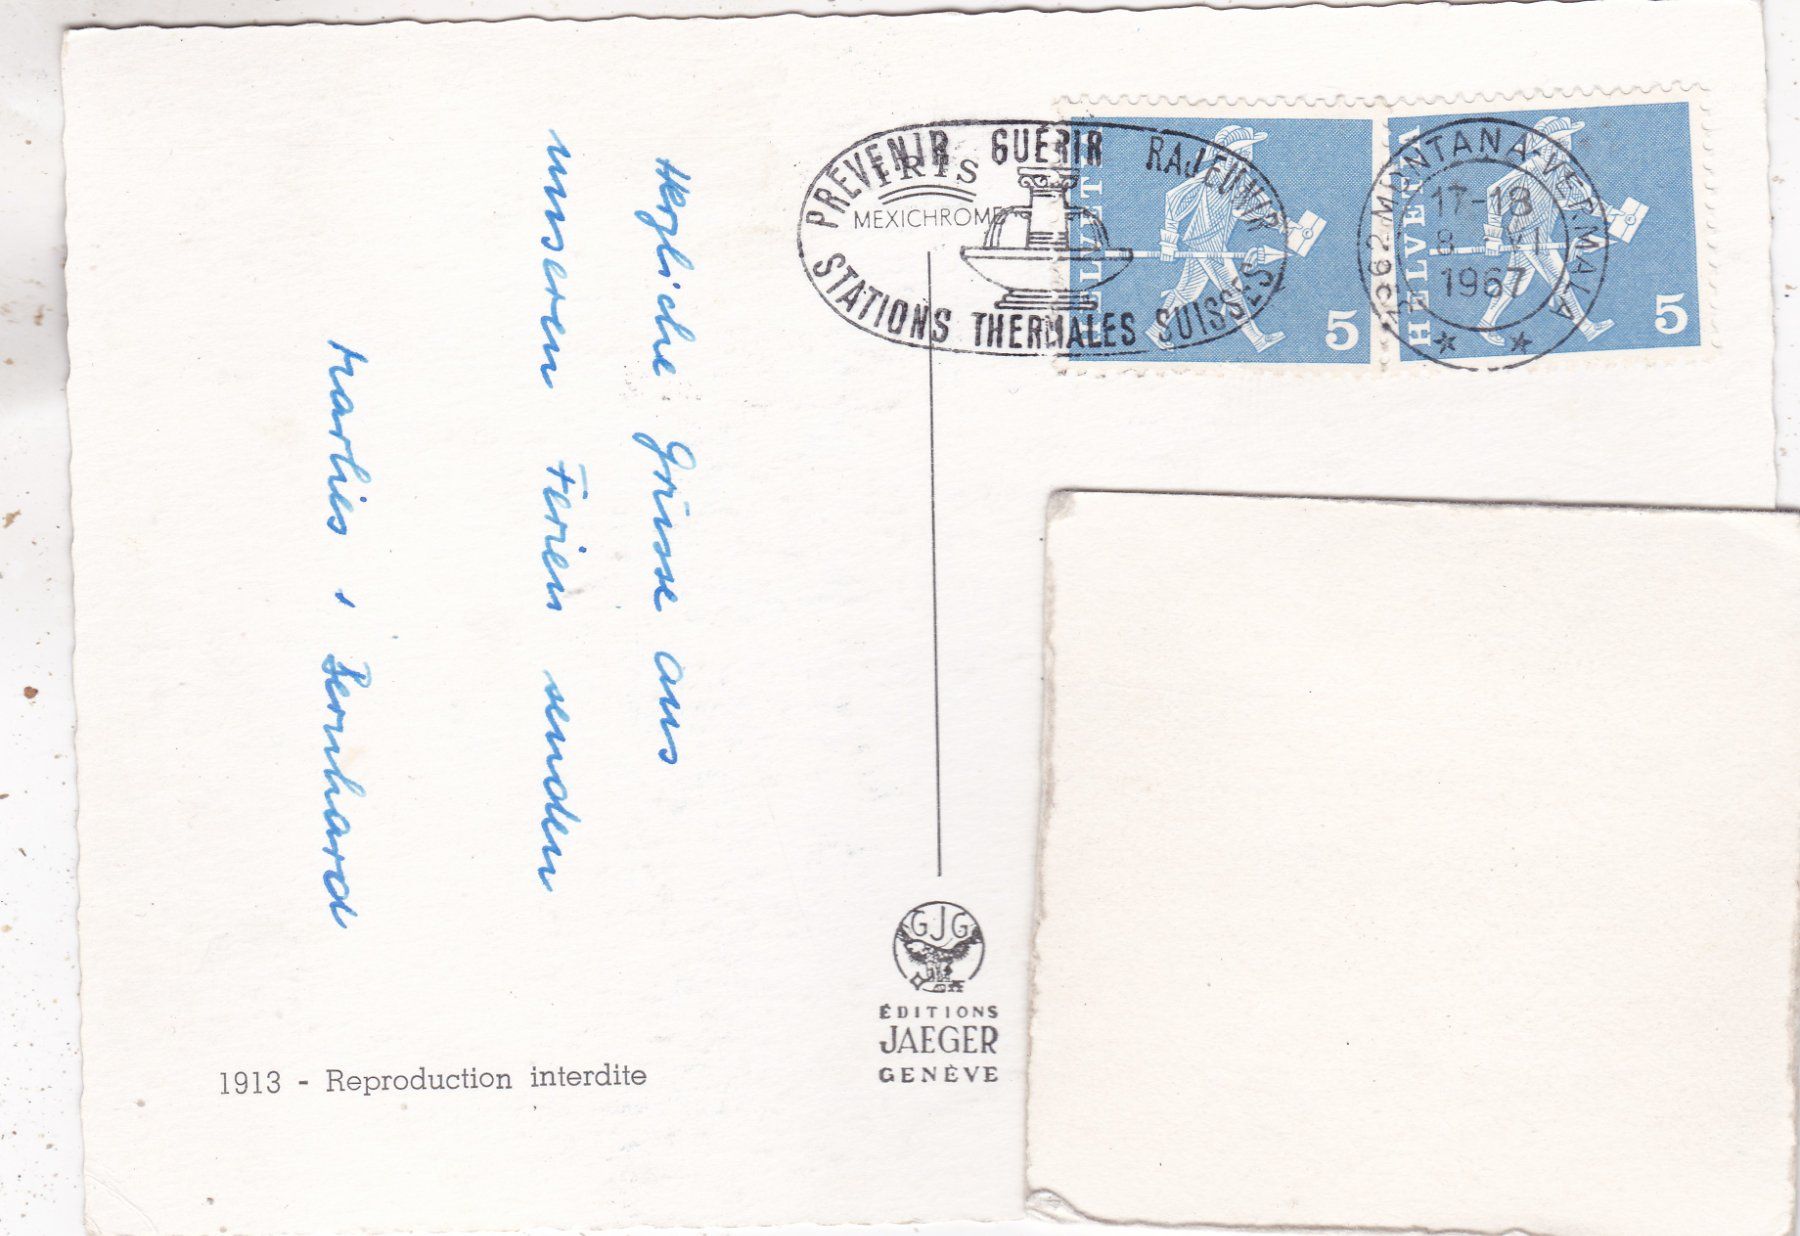 Herzliche Grüsse aus
unseren Ferien senden
Marlies, Bernhard
1913 - Reproduction interdite
IRIS
MEXICHROME
PRÉVENIR GUÉRIR RAJEUNIR
STATIONS THERMALES SUISSES
HELVETIA
5
HELVETIA
5
3962 MONTANA-VERMALA
17-18
8. VI
1967
GJG
ÉDITIONS
JAEGER
GENÈVE